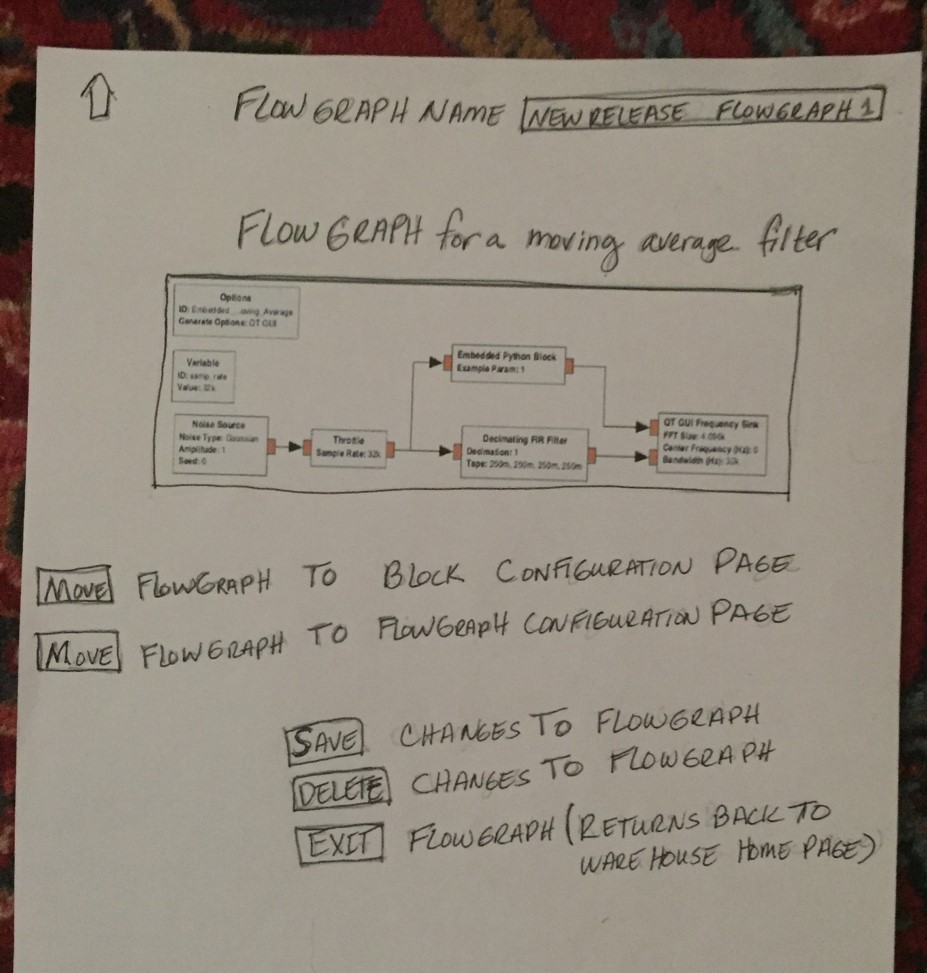 FLOWGRAPH NAME NEW RELEASE FLOWGRAPH 1
FLOWGRAPH for a moving average filter
Options
ID: Embedded ...oving_Average
Generate Options: QT GUI
Variable
ID: samp_rate
Value: 32k
Noise Source
Noise Type: Gaussian
Amplitude: 1
Seed: 0
Throttle
Sample Rate: 32k
Embedded Python Block
Example Param: 1
Decimating FIR Filter
Decimation: 1
Taps: 250m, 250m, 250m, 250m
QT GUI Frequency Sink
FFT Size: 4.096k
Center Frequency (Hz): 0
Bandwidth (Hz): 32k
MOVE FLOWGRAPH TO BLOCK CONFIGURATION PAGE
MOVE FLOWGRAPH TO FLOWGRAPH CONFIGURATION PAGE
SAVE CHANGES TO FLOWGRAPH
DELETE CHANGES TO FLOWGRAPH
EXIT FLOWGRAPH (RETURNS BACK TO
WAREHOUSE HOME PAGE)